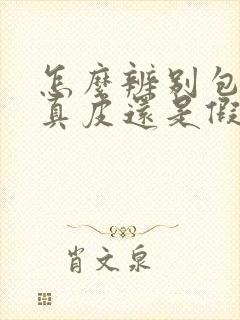 怎麼辨别包
真皮還是假
肖文泉